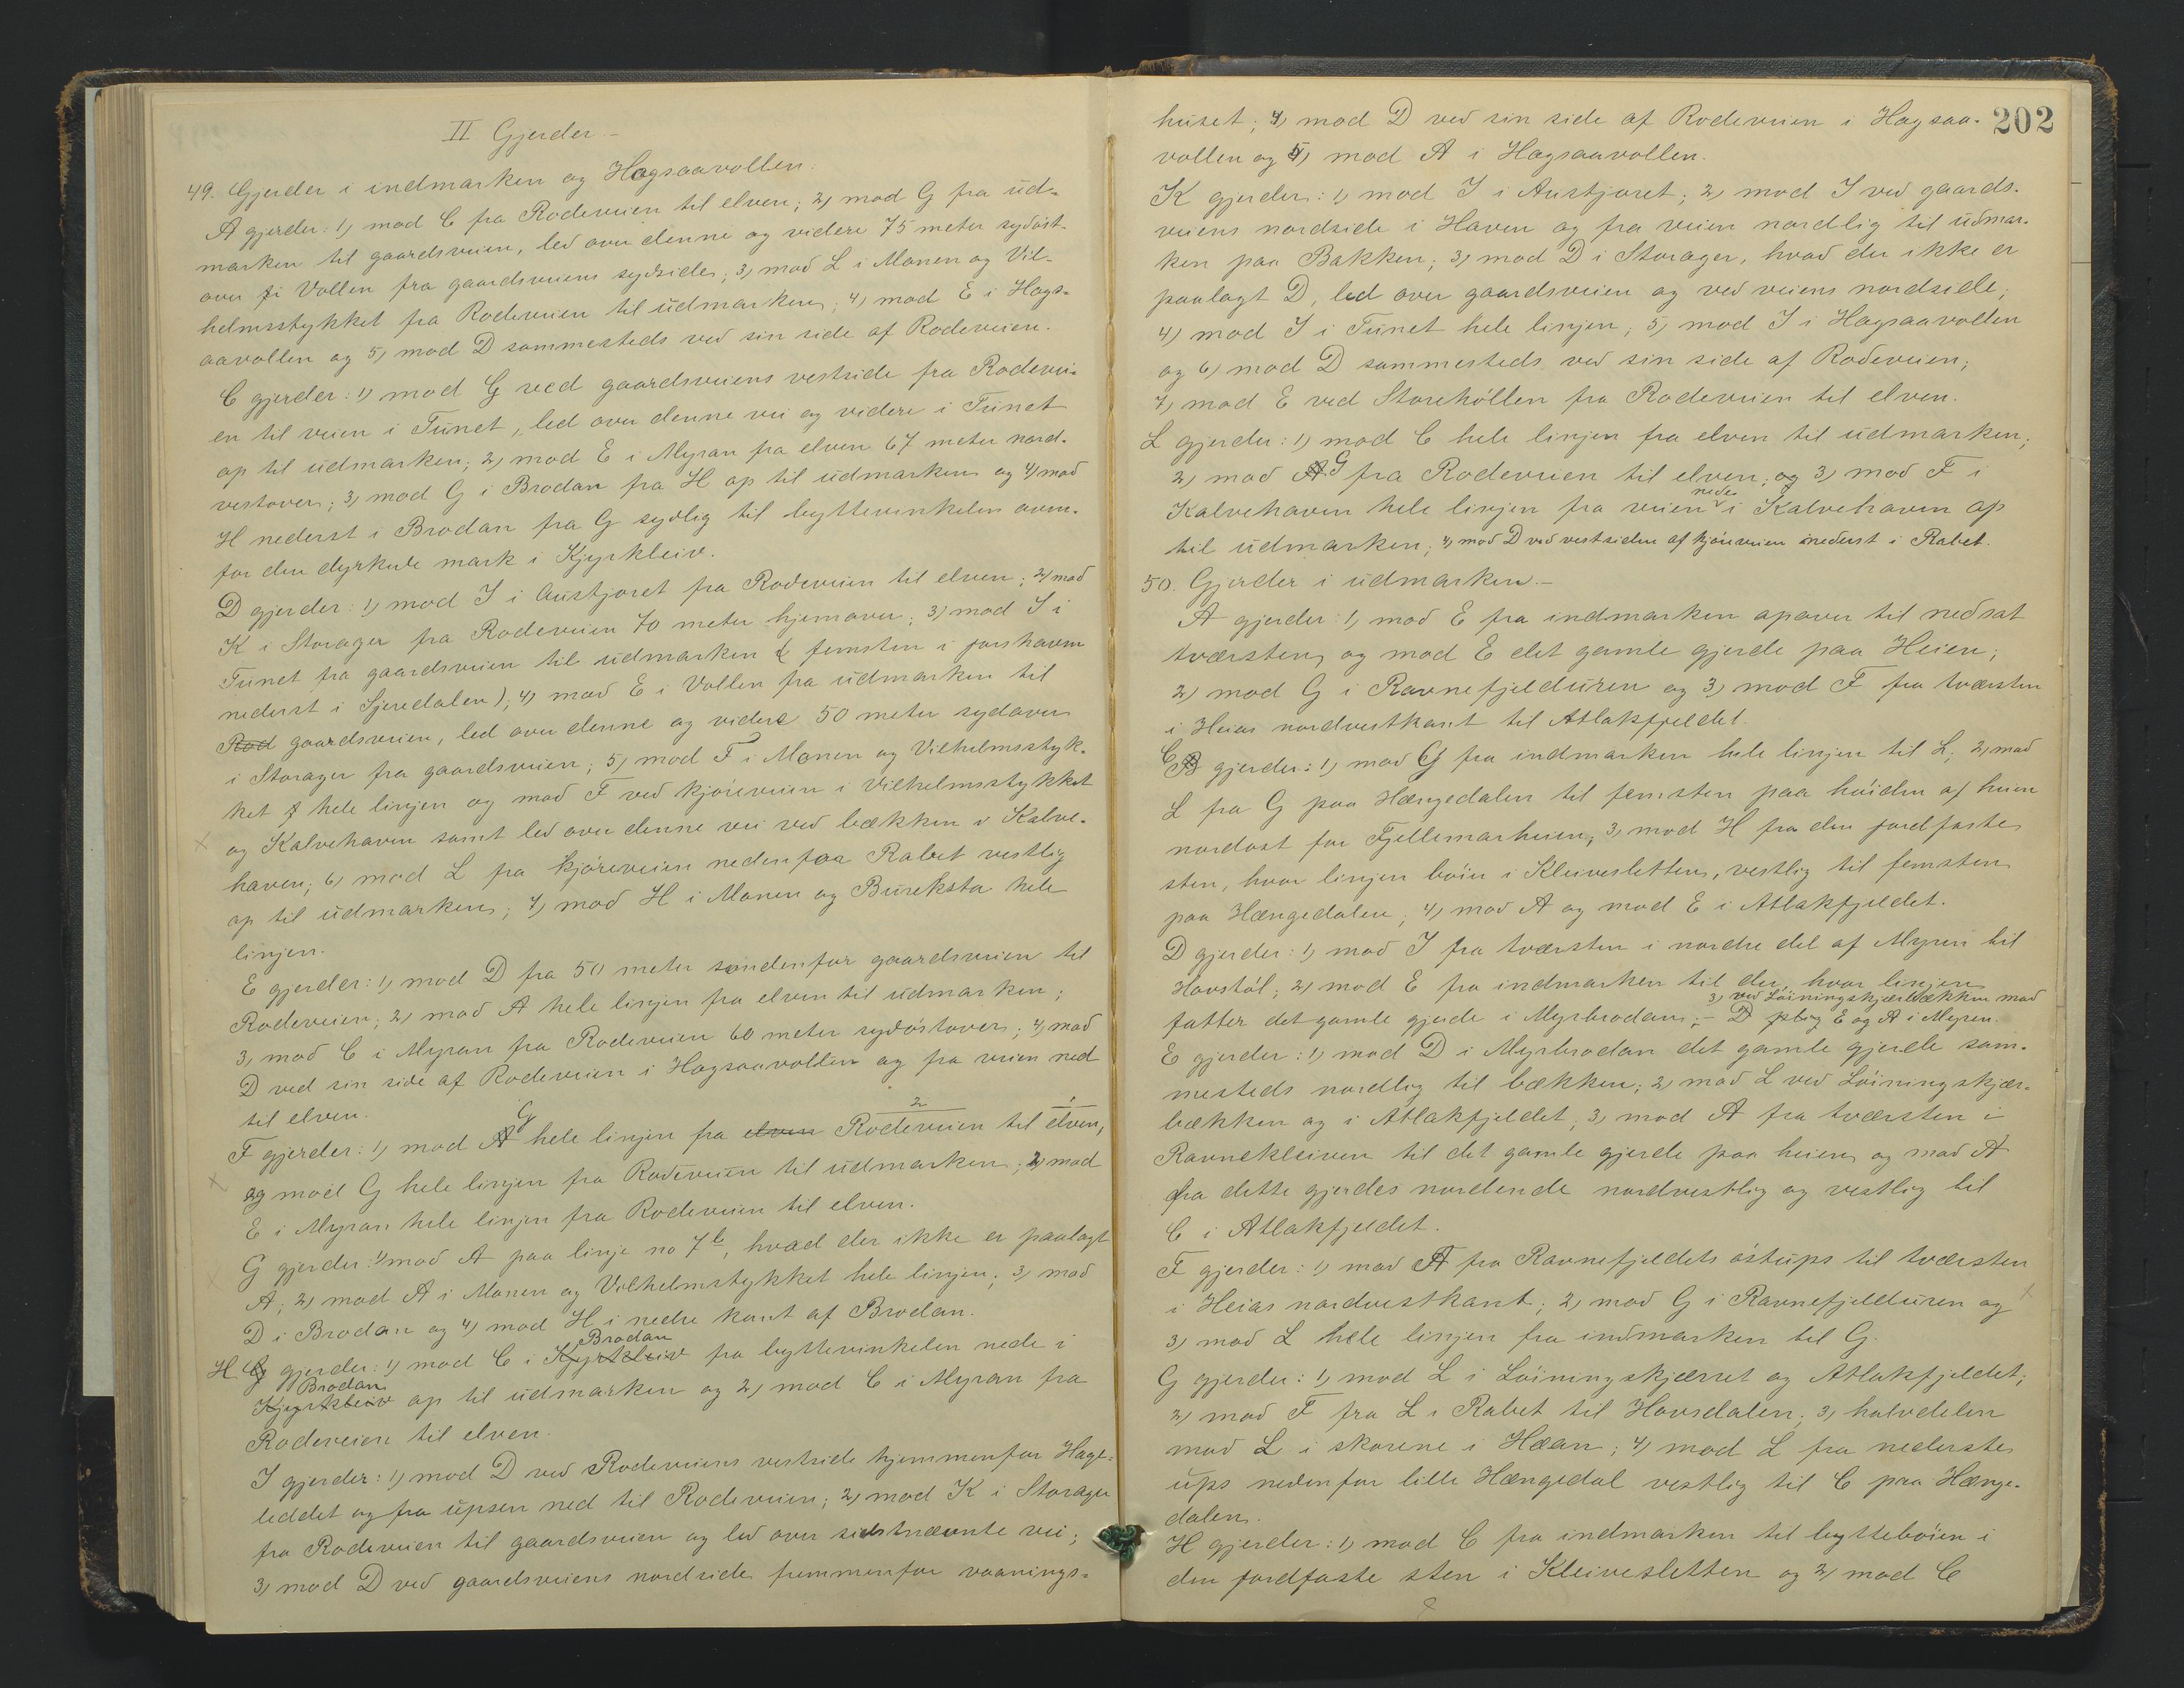 II Gjerder.-
49. Gjerder i indmarken og Hagsaavollen.
A gjerder: 1) mod C fra Rodeveien til elven; 2) mod G fra ud-
marken til gaardsveien, led over denne og videre 75 meter sydøst-
over i Vollen fra gaardsveiens sydside; 3) mod L i Monen og Vil-
helmsstykket fra Rodeveien til udmarken; 4) mod E i Hags-
aavollen og 5) mod D sammesteds ved sin side af Rodeveien.
C gjerder: 1) mod G ved gaardsveiens vestside fra Rodevei-
en til veien i Tunet, led over denne vei og videre i Tunet
op til udmarken; 2) mod E i Myran fra elven 67 meter nord-
vestover; 3) mod G i Brodan fra H op til udmarken og 4) mod
H nederst i Brodan fra G sydlig til byttevinkelen oven-
for den dyrkede mark i Kjyrkleiv.
D gjerder: 1) mod I i Austjoret fra Rodeveien til elven; 2) mod
K i Storager fra Rodeveien 70 meter hjemover; 3) mod I i
Tunet fra gaardsveien til udmarken (femsten i
nederst i Sjeredalen); 4) mod E i Vollen fra udmarken til
Rod gaardsveien, led over denne og videre 50 meter sydover
i Storager fra gaardsveien; 5) mod F i Monen og Vilhelmsstyk-
ket hele linjen og mod F ved kjøreveien i Vilhelmsstykket
og Kalvehaven samt led over denne vei ved bækken i Kalve-
haven; 6) mod L fra kjøreveien nedenfor Rabet vestlig
op til udmarken; 7) mod H i Monen og Bureksta hele
linjen.
E gjerder: 1) mod D fra 50 meter søndenfor gaardsveien til
Rodeveien; 2) mod A hele linjen fra elven til udmarken;
3) mod C i Myran fra Rodeveien 60 meter sydøstover; 4) mod
D ved sin side af Rodeveien i Hagsaavollen og fra veien ned
til elven.
F gjerder: 1) mod A G hele linjen fra elven Rodeveien til elven,
og mod G hele linjen fra Rodeveien til udmarken; 2) mod
E i Myran hele linjen fra Rodeveien til elven.
G gjerder: 1) mod A paa linje no 7 b, hvad der ikke er paalagt
A; 2) mod A i Monen og Vilhelmstykket hele linjen; 3) mod
D i Brodan og 4) mod H i nedre kant af Brodan.
H. G gjerder: 1) mod C i Kjyrkleiv Brodan fra byttevinkelen nede i
Kjyrkleiv Brodan op til udmarken og 2) mod C i Myran fra
Rodeveien til elven.
I gjerder: 1) mod D ved Rodeveiens vestside hjemmenfor Hage-
leddet og fra upsen ned til Rodeveien; 2) mod K i Storager
fra Rodeveien til gaardsveien og led over sidstnævnte vei;
3) mod D ved gaardsveiens nordside fremmenfor vaanings-
202
huset; 4) mod D ved sin side af Rodeveien i Hagsaa-
vollen og 5) mod A i Hagsaavollen.
K gjerder: 1) mod I i Austjoret; 2) mod I ved gaards-
veiens nordside i Haven og fra veien nordlig til udmar-
ken paa Bakken; 3) mod D i Storager, hvad der ikke er
paalagt D, led over gaardsveien og ved veiens nordside;
4) mod I i Tunet hele linjen; 5) mod I i Hagsaavollen
og 6) mod D sammesteds ved sin side af Rodeveien;
7) mod E ved Storehøllen fra Rodeveien til elven.
L gjerder: 1) mod C hele linjen fra elven til udmarken;
2) mod A G fra Rodeveien til elven; og 3) mod F i
Kalvehaven hele linjen fra veien nede i Kalvehaven op
til udmarken; 4) mod D ved vestsiden af kjøreveien nederst i Rabet.
50. Gjerder i udmarken.-
A gjerder: 1) mod E fra indmarken opover til nedsat
tværsten og mod E det gamle gjerde paa Heien;
2) mod G i Ravnefjelduren og 3) mod F fra tværsten
i Heias nordvestkant til Atlakfjeldet.
C B gjerder: 1) mod G fra indmarken hele linjen til L; 2) mod
L fra G paa Hængedalen til femsten paa høiden af heien
nordost for Fjellemarheien; 3) mod H fra den jordfaste
sten, hvor linjen bøier i Kleivesletten, vestlig til femsten
paa Hængedalen; 4) mod A og mod E i Atlakfjeldet.
D gjerder: 1) mod I fra tværsten i nordre del af Myren til
Hovstøl; 2) mod E fra indmarken til der, hvor linjen
fatter det gamle gjerde i Myrbrodan; - 3) ved Løiningskjærbækken mod
D E og A i Myren.
E gjerder: 1) mod D i Myrbrodan det gamle gjerde sam-
mesteds nordlig til bækken; 2) mod L ved Løiningskjær-
bækken og i Atlakfjeldet; 3) mod A fra tværsten i
Ravnekleiven til det gamle gjerde paa heien og mod A
fra dette gjerdes nordende nordvestlig og vestlig til
C i Atlakfjeldet.
F gjerder: 1) mod A fra Ravnefjeldets østups til tværsten
i Heias nordvestkant; 2) mod G i Ravnefjelduren og
3) mod L hele linjen fra indmarken til G.
G gjerder: 1) mod L i Løiningskjærret og Atlakfjeldet;
2) mod F fra L i Rabet til Hovsdalen; 3) halvdelen
mod L i skorene i Hæan; 4) mod L fra nederste
ups nedenfor lille Hængedal vestlig til C paa Hænge-
dalen.
H gjerder: 1) mod C fra indmarken til byttebøien i
den jordfaste sten i Kleivesletten og 2) mod C